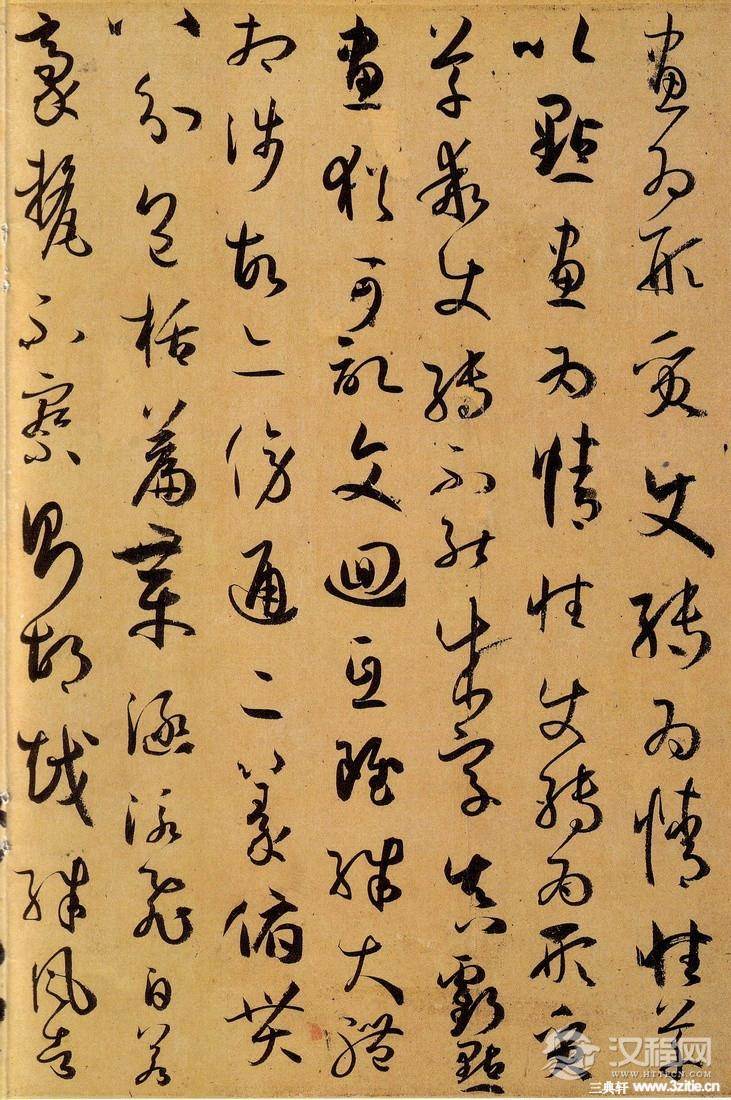 畫為形質使轉為情性草
以點畫為情性使轉為形質
草乖使轉不能成字真虧點
畫猶可記文迴互雖殊大體
相涉故亦傍通二篆俯貫
八分包括篇章涵泳飛白若
豪氂不察則胡越殊風者
汉程网
三典轩 www.3zitie.cn